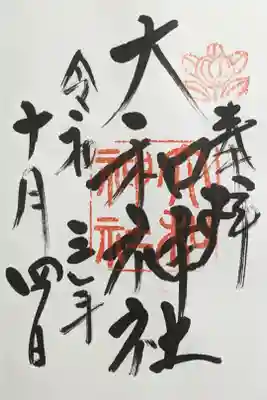 奉拝
大和神社
令和三年
十月四日